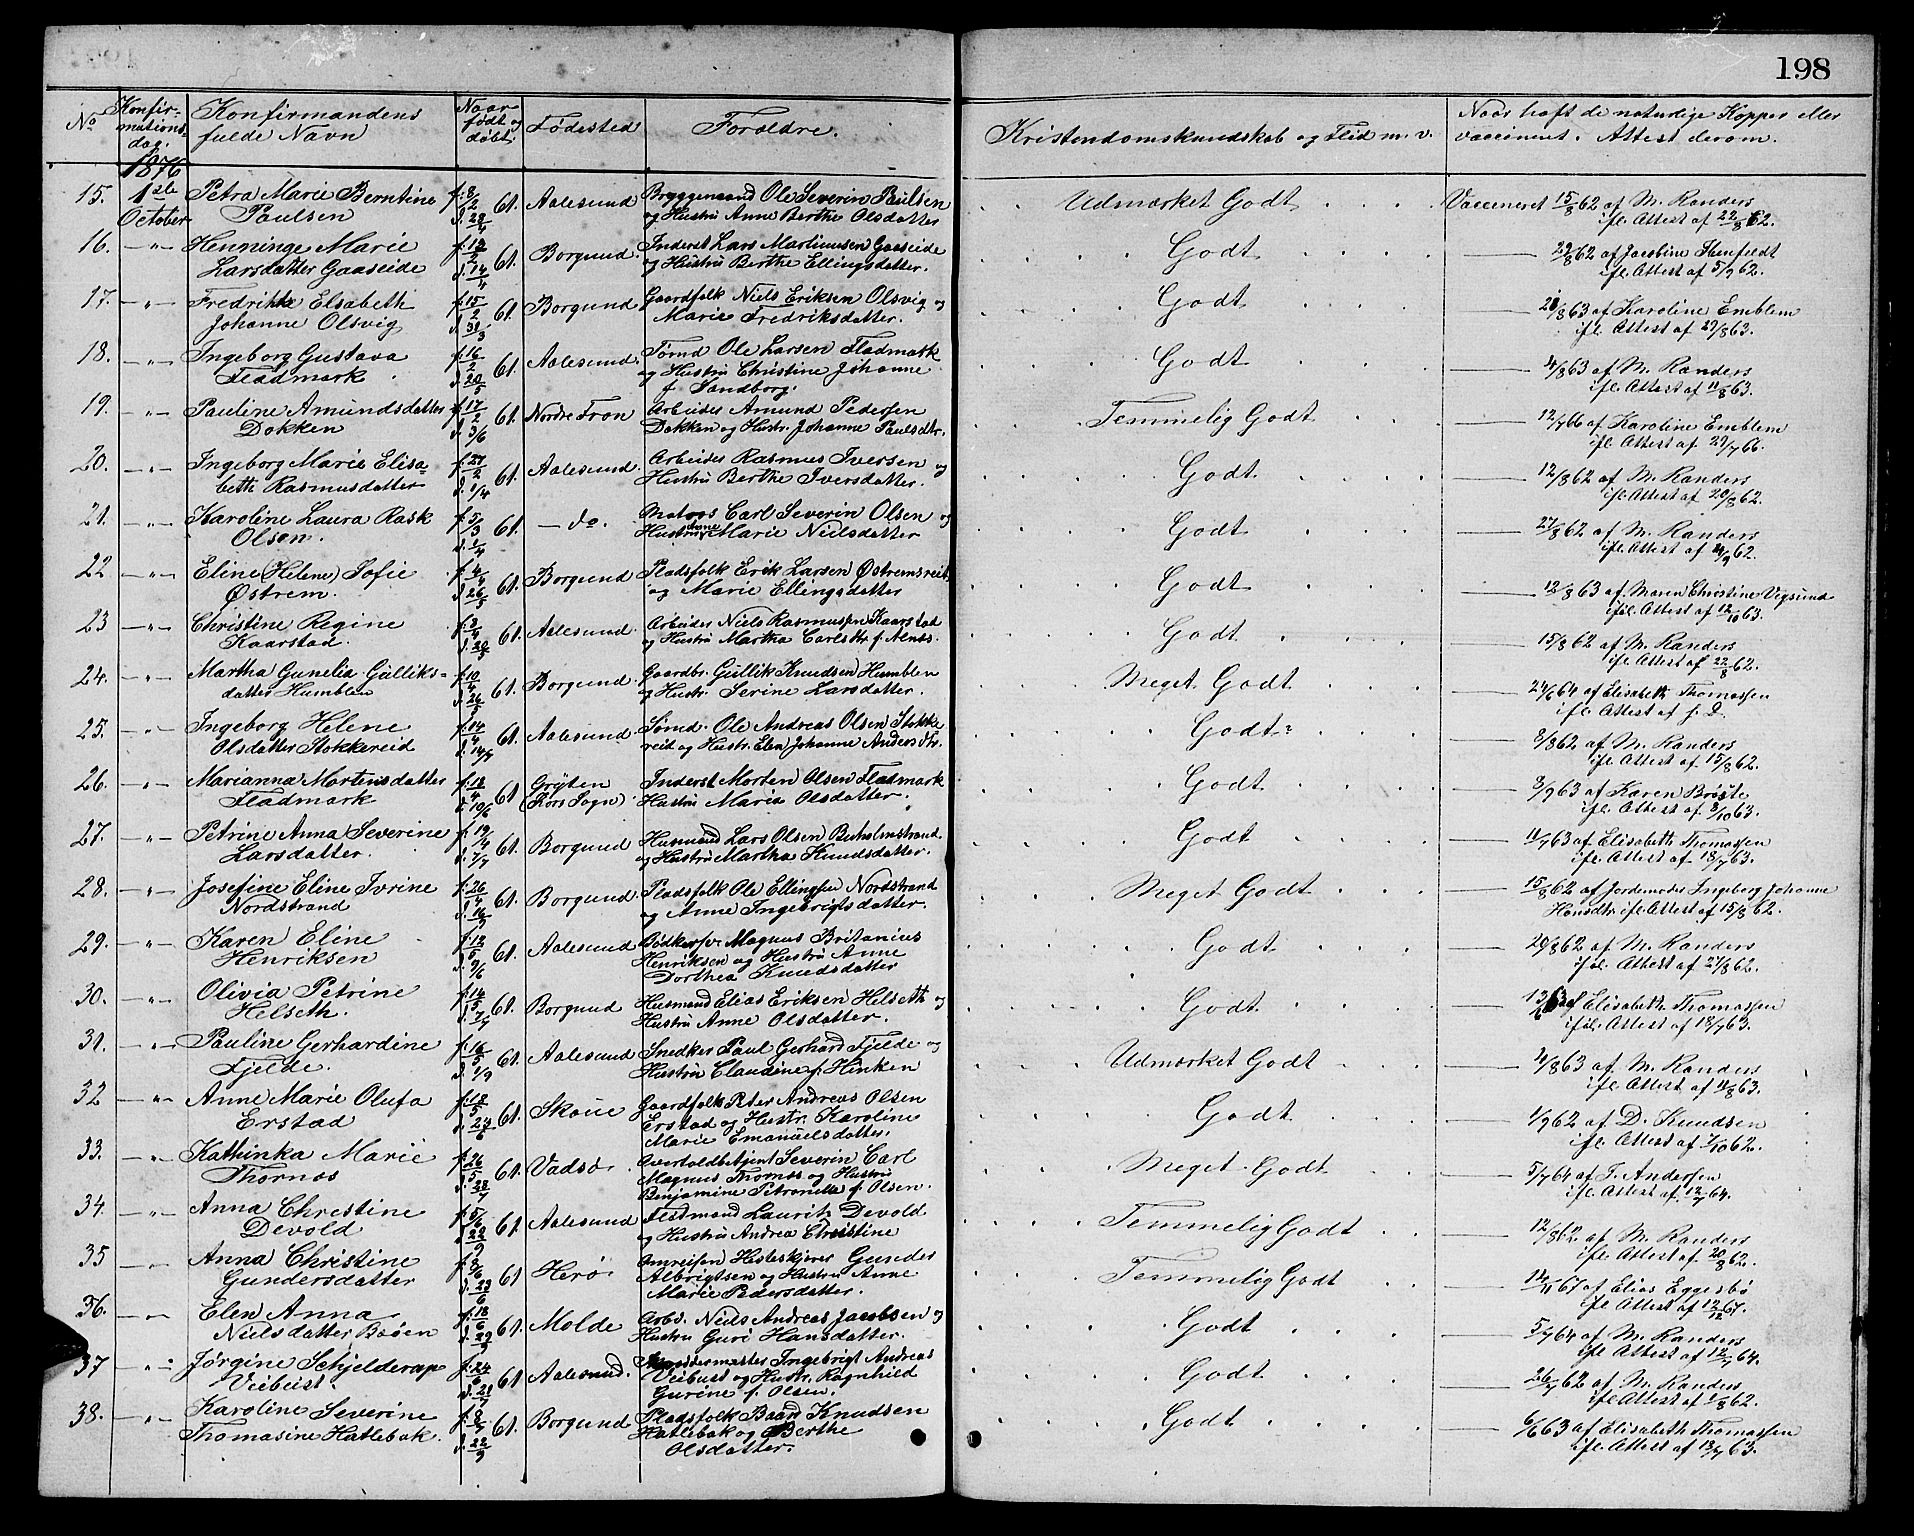 198
No
Konfir-
mations-
dag.
Konfirmandens
fulde Navn
Naar
født og
døbt
Fødested
Forældre.
Kristendomskundskab og Flid m. v.
Naar haft de naturlige Kopper eller
vaccineret. Attest derom.
1876
15. 1ste October Petra Marie Berntine f. 8/2 61. Aalesund Bryggemand Ole Severin Paulsen Udmærket Godt Vaccineret 15/8 62 af M. Randers
Paulsen d. 28/4 og Hustru Anne Berthe Olsdatter ifl. Attest af 22/8 62.
16. -"- Henninge Marie f. 12/2 61. Borgund. Inderst Lars Martinusen Gaaseide Godt 29/8 62 af Jacobine Stenfeldt
Larsdatter Gaaseide d. 14/4 og Hustru Berthe Ellingsdatter. ifl. Attest af 5/9 62.
17. -"- Fredrikke Elsabeth f. 15/2 61. Borgund Gaardfolk Niels Eriksen Olsvig og Godt /8 63 af Karoline Emblem
Johanne Olsvig d. 31/3 Marie Fredriksdatter. ifl. Attest af 29/8 63.
18. -"- Ingeborg Gustava f. 16/2 61. Aalesund Tømd Ole Larsen Fladmark Godt 4/8 63 af M. Randers
Fladmark d. 20/5 og Hustru Christine Johanne ifl. Attest af 11/8 63.
f. Sandborg.
19. -"- Pauline Amundsdatter f. 17/2 61. Nordre Fron Arbeider Amund Pedersen Temmelig Godt 12/7 66 af Karoline Emblem
Dokken d. 3/6 Dokken og Hustr. Johanne Paulsdtr. ifl. Attest af 27/7 66.
20. -"- Ingeborg Marie Elisa- f. 27/2 61. Aalesund. Arbeider Rasmus Iversen og Godt 12/8 62 af M. Randers
beth Rasmusdatter d. 1/4 Hustru Berthe Iversdatter. ifl. Attest af 20/8 62.
21. -"- Karoline Laura Rask f. 5/3 61. - do. Matros Carl Severin Olsen og Godt 27/8 62 af M. Randers
Olsen. d. 1/4 Hustru Anne Marie Nielsdatter ifl. Attest af /9 62.
22 -"- Eline (Helene) Sofie f. 4/4 61. Borgund Pladsfolk Erik Larsen Østremsreit Godt 12/8 63 af Maren Christine Vegsund
Østrem. d. 26/5 og Marie Ellingsdatter ifl. Attest af 12/10 63.
23 -"- Christine Regine f. 3/4 61. Aalesund. Arbeider Niels Rasmussen Kaarstad Godt 15/8 62 af M. Randers
Kaarstad. d. 20/5 og Hustru Martha Carlsdtr f. Alnæs. ifl. Attest af 22/8 62.
24. -"- Martha Gunelia Gulliks- f. 10/4 61. Borgund. Gaardbr. Gullik Knudsen Humblen Meget Godt 24/6 64 af Elisabeth Thomassen
datter Humblen d. 26/5 og Hustr. Serine Larsdatter. ifl. Attest af s. D.
25. -"- Ingeborg Helene f. 14/4 61. Aalesund. Tømd. Ole Andreas Olsen Stokke Godt /8 62 af M. Randers
Olsdatter Stokkereid d. 14/7 reid og Hustr. Elen Johanne Andersdtr. ifl. Attest af 15/8 62.
26. -"- Marianna Martensdatter f. 18/4 61 Grytten Inderst Morten Olsen Fladmark Godt 3/9 63 af Karen Brøste
Fladmark d. 10/6 (Kors Sogn) Hustru Maria Olsdatter. ifl. Attest af 3/10 63.
27. -"- Petrine Anna Severine f. 19/4 61. Borgund Husmand Lars Olsen Buholmstrand Godt 11/7 63 af Elisabeth Thomassen
Larsdatter. d. 7/7 og Hustru Martha Knudsdatter. ifl. Attest af 18/7 63.
28. -"- Josefine Eline Ivrine f. 26/4 61. Borgund Pladsfolk Ole Ellingsen Nordstrand Meget Godt 15/8 62 af Jordemoder Ingeborg Johanne
Nordstrand d. 16/9 og Anne Ingebrigtsdatter. Hansdtr. ifl. Attest af 15/8 62.
29. -"- Karen Eline f. 12/5 61. Aalesund Bødkersv. Magnus Britanius Godt 20/8 62 af M. Randers
Henriksen d. 9/6 Henriksen og Hustru Anne ifl. Attest af 27/8 62.
Dorthea Knudsdatter
30. -"- Olivia Petrine f. 14/5 61. Borgund Husmand Elias Eriksen Helseth og Godt af Elisabeth Thomassen
Helseth. d. 7/7 Hustru Anne Olsdatter. ifl. Attest af 18/7 63.
31. -"- Pauline Gerhardine f. 16/5 61. Aalesund Snedker Paul Gerhard Fjelde og Udmærket Godt 4/8 63 af M. Randers
Fjelde. d. 1/9 Hustru Claudine f. Hinken ifl. Attest af 11/8 63.
32 -"- Anne Marie Olufa f. 18/5 61. Skoue Gaardfolk Peter Andreas Olsen Godt 1/9 62 af D. Knudsen
Erstad d. 23/6 Erstad og Hustr. Karoline ifl. Attest af 1/10 62.
Marie Emanuelsdatter.
33. -"- Kathinka Marie f. 26/5 61. Vadsø Overtoldbetjent Severin Carl Meget Godt 5/7 64 af T. Andersen
Thornæs d. 28/7 Magnus Thornæs og Hustru ifl. Attest af 12/7 64.
Benjamine Petronelle f. Olsen.
34. -"- Anna Christine f. 5/6 61. Aalesund Fladmand Laurits Devold Temmelig Godt 12/8 62 af M. Randers
Devold d. 22/9 og Hustru Andrea Christine ifl. Attest af 20/8 62.
35 -"- Anna Christine f. 8/6 61 Herø Omreisen. Hesteskjærer Gunder Temmelig Godt 14/11 67 af Elias Eggesbø
Gundersdatter d. 23/6 Albrigtsen og Hustru Anne ifl. Attest af 12/12 67.
Marie Pedersdatter.
36. -"- Elen Anna f. 18/6 61. Molde Arb. Niels Andreas Jacobsen og Godt 5/7 64 af M. Randers
Nielsdatter Bøen d. 29/9 Hustru Guri Hansdatter. ifl. Attest af 12/7 64.
37 -"- Jørgine Schjelderup f. 24/6 61 Aalesund. Muddermester Ingebrigt Andreas Godt 26/7 62 af M. Randers
Veibust. d. 28/7 Veibust og Hustr. Ragnhild ifl. Attest af /8 62.
Gurine f. Olsen.
38. -"- Karoline Severine f. 8/7 61. Borgund Pladsfolk Baard Knudsen Godt 6/6 63 af Elisabeth Thomassen
Thomasine Hatlebak. d. 22/9 Hatlebak og Berthe ifl. Attest af 13/7 63.
Olsdatter.